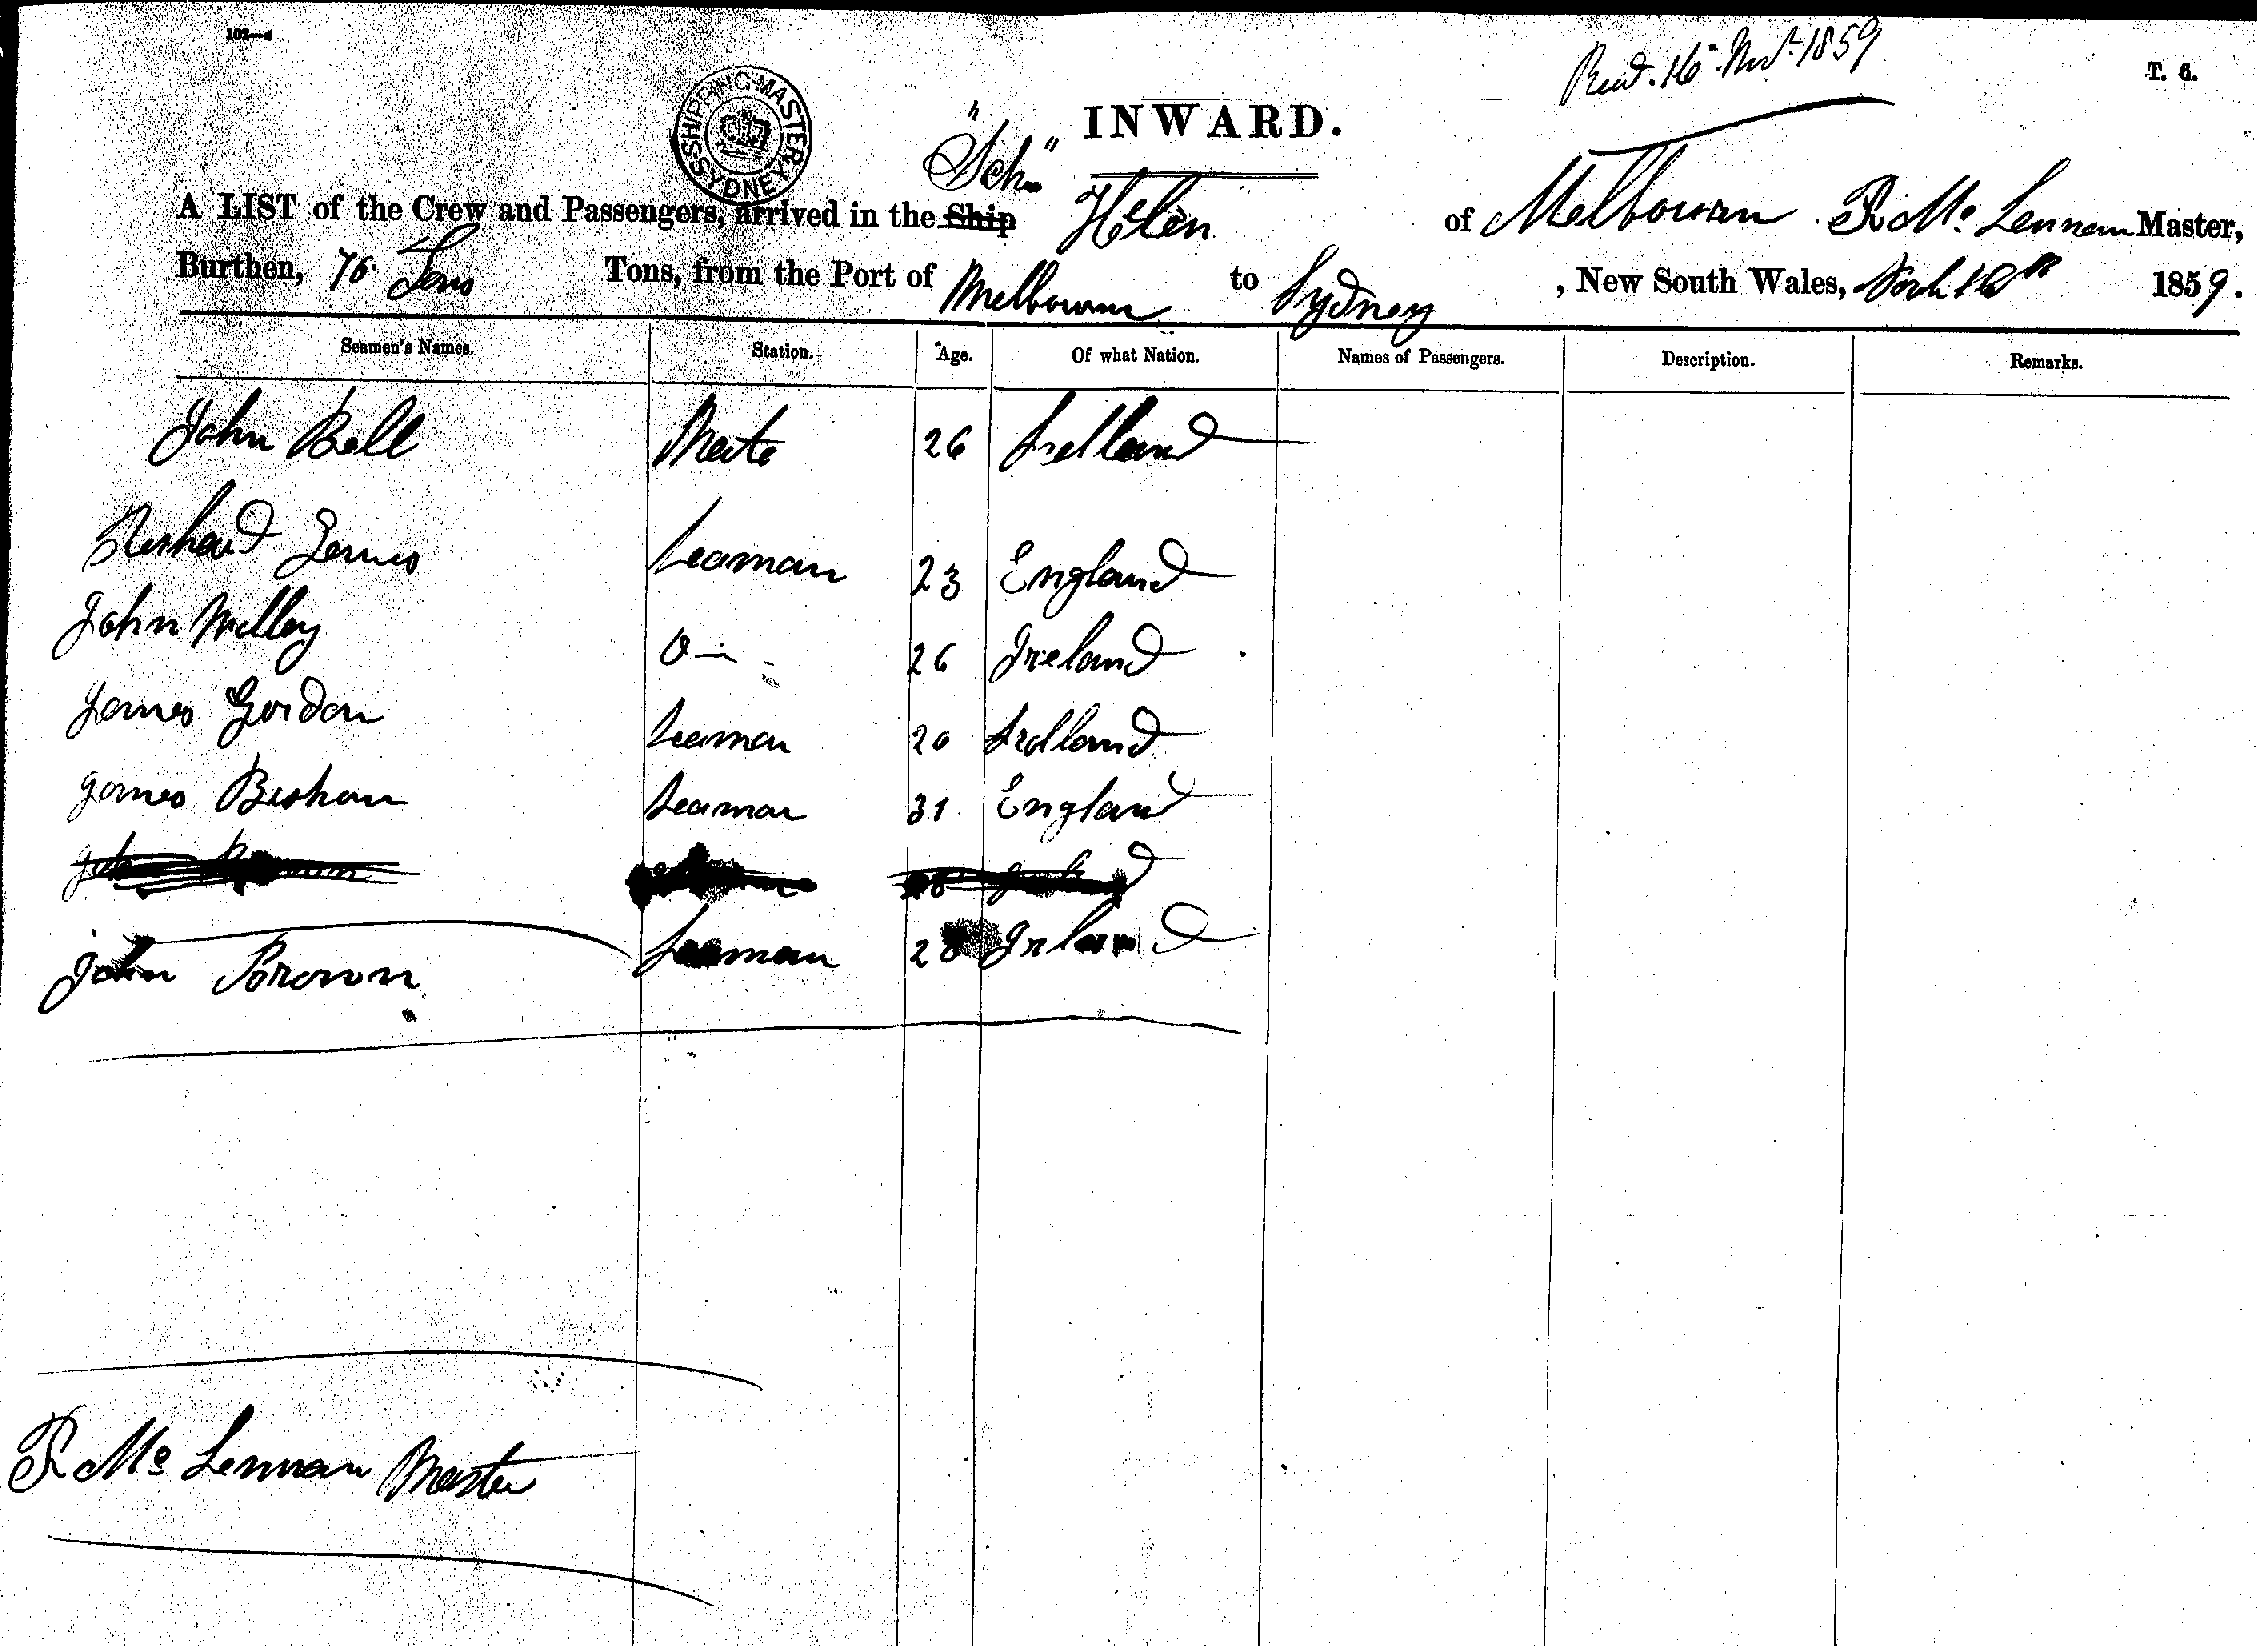 102—a
Recd. 16th Novr. 1859
T. 6.
SHIPPING MASTER SYDNEY
INWARD.
"Schr"
A LIST of the Crew and Passengers, arrived in the Ship Helen of Melbourn R Mc Lennan Master,
Burthen, 76 Tons Tons, from the Port of Melbourn to Sydney , New South Wales, 1859.
Seamen's Names. Station. Age. Of what Nation. Names of Passengers. Description. Remarks.
John Bell Mate 26 Irelland
Richard James Seaman 23 England
John Milley Do 26 Ireland
James Gordon Seaman 20 Irelland
James Beshan Seaman 31 England
John Brown Seaman 28 Ireland
R Mc Lennan Master